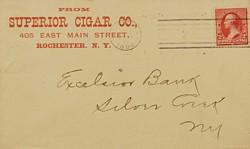 FROM
SUPERIOR CIGAR CO.,
405 EAST MAIN STREET,
ROCHESTER. N. Y.
Excelsior Bank
Silver Creek
NY